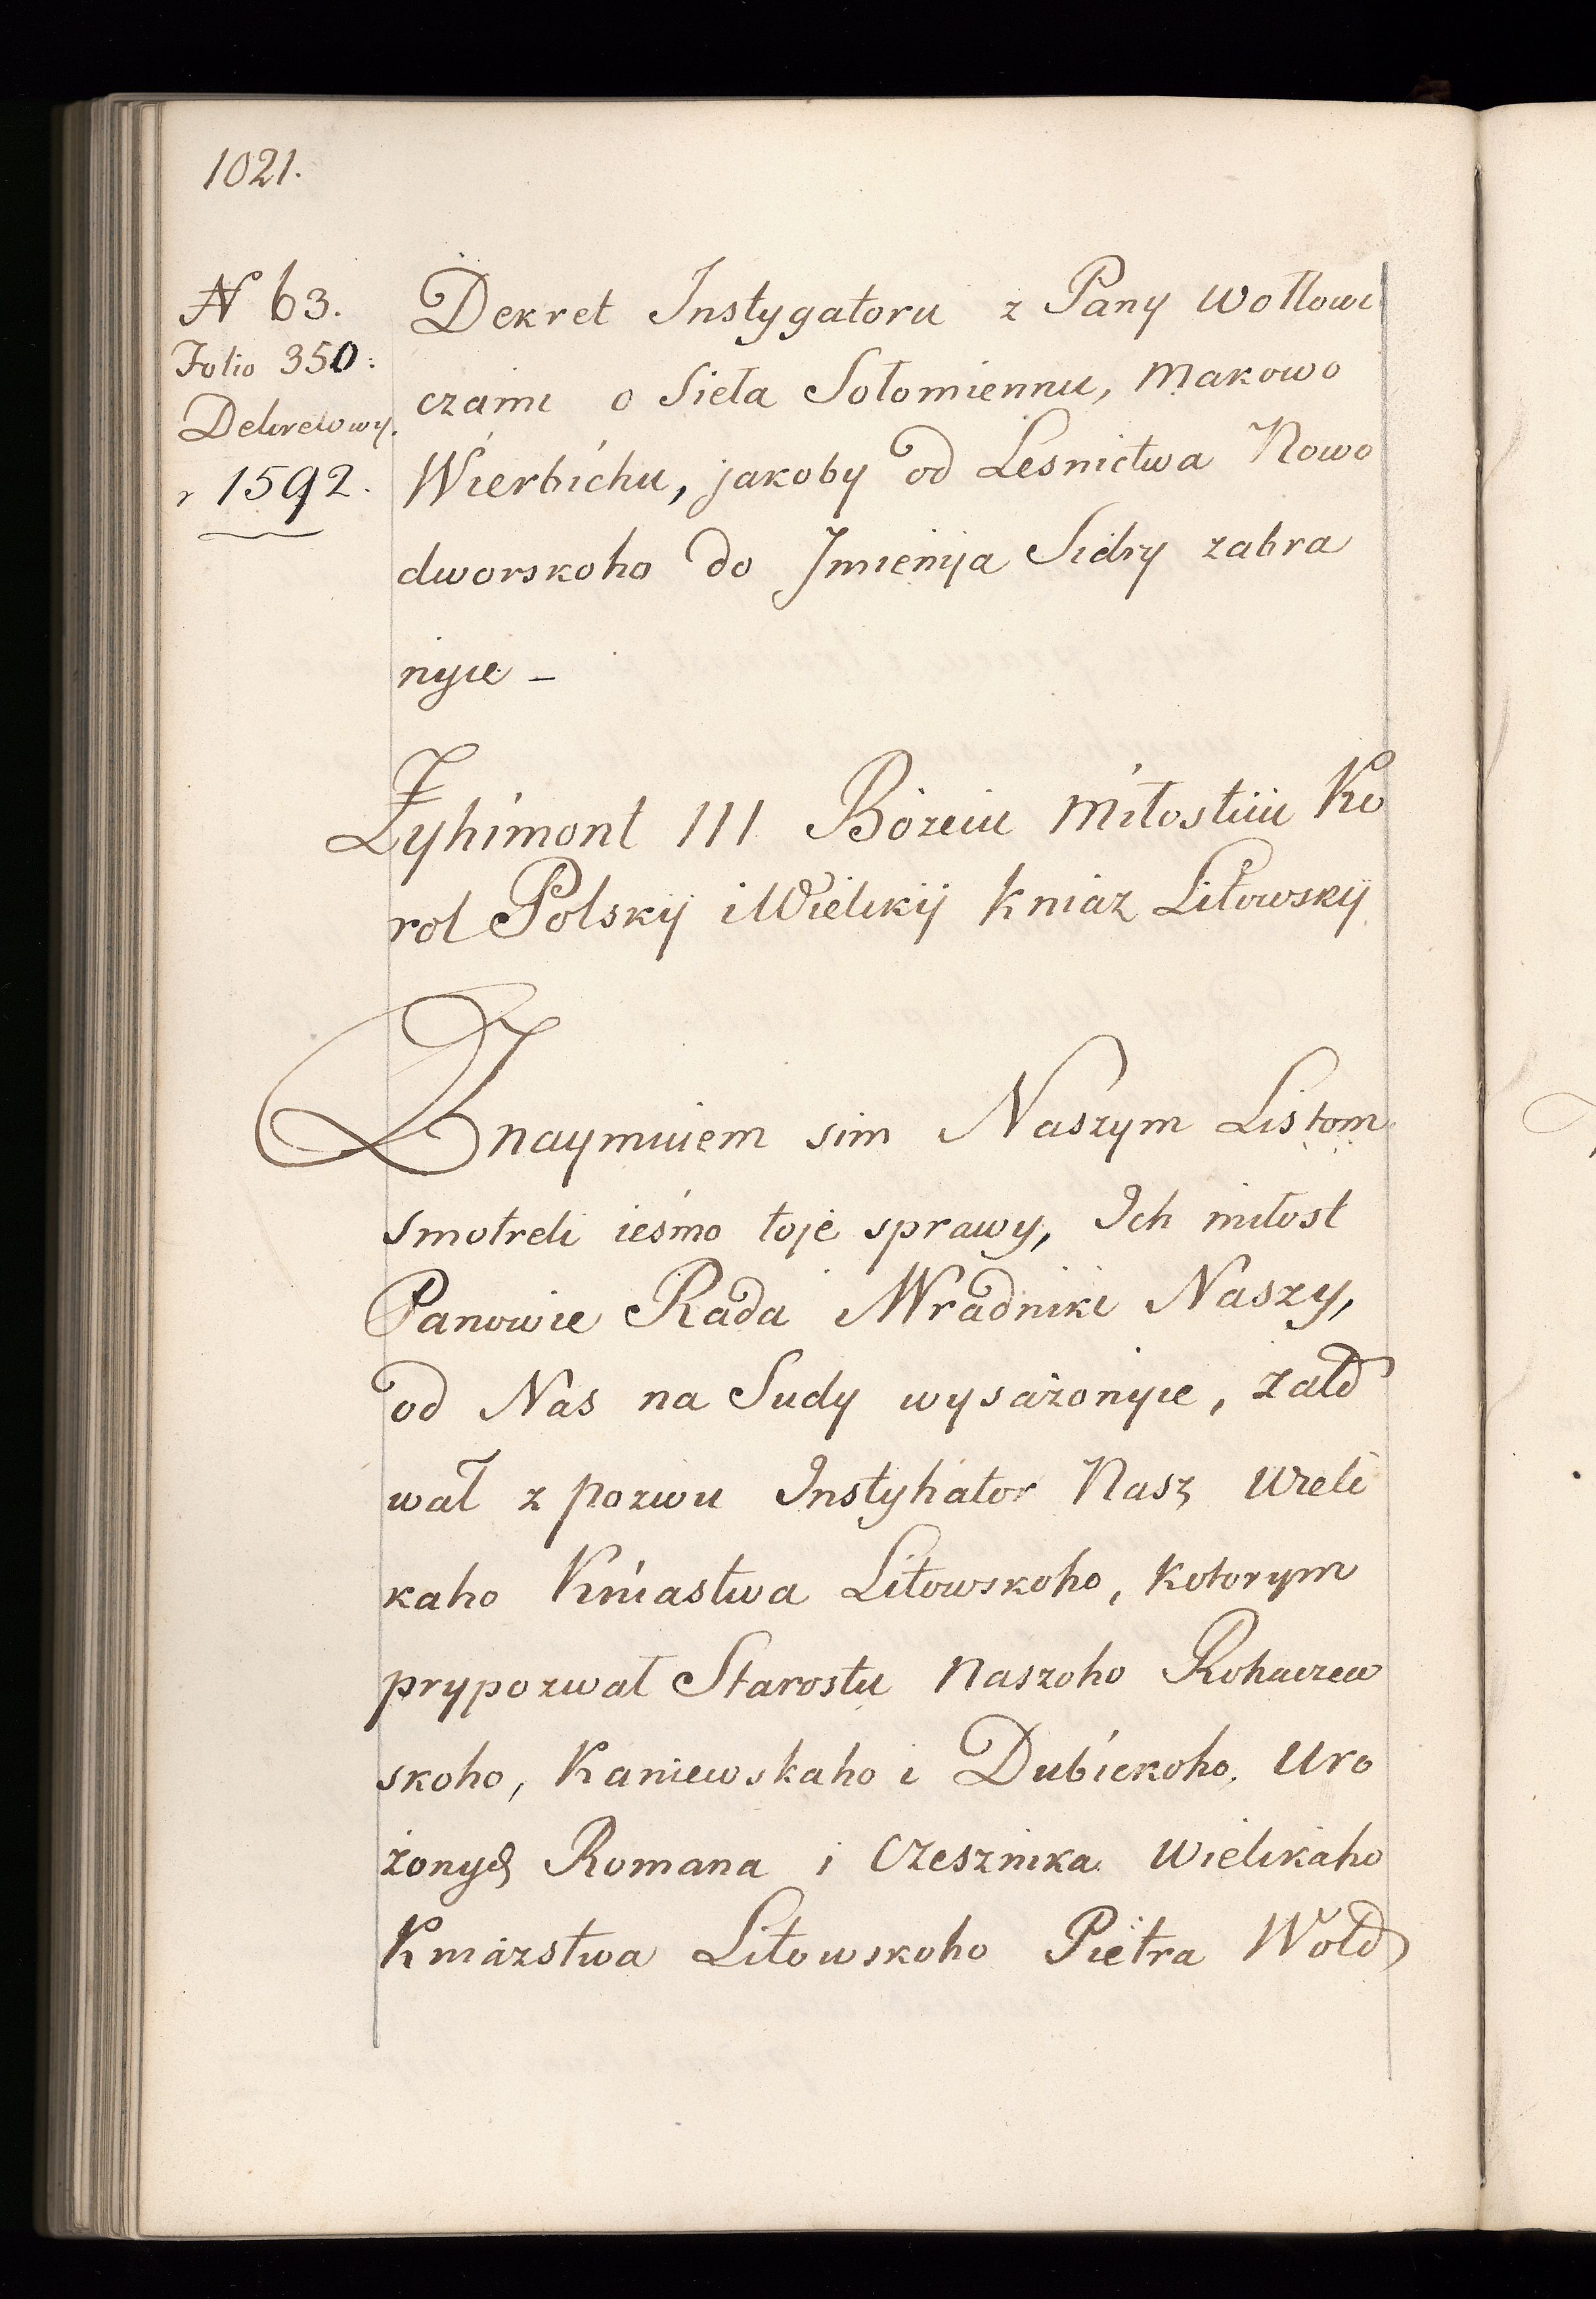 1021.
N 63.
Folio 350.
Dekretowy.
r 1592.
Dekret Instygatoru z Pany Wołłowi
czami o Sieła Sołomiennu, Makowo
Wierbichu, jakoby od Lesnictwa Nowo
dworskoho do Jmienija Sidry zabra
nyie –
Żyhimont III Bożeiu Miłostiiu Ko
rol Polskij i Wielikij Kniaz Litowskij
Znaymuiem sim Naszym Listom
smotreli ieśmo toje sprawy, Ich miłost
Panowie Rada i Wradniki Naszy,
od Nas na Sudy wysażonyie, żało
wał z pozwu Instyhator Nasz Wieli
kaho Kniastwa Litowskoho, kotorym
prypozwał Starostu Naszoho Rohaczew
skoho, Kaniewskaho i Dubickoho, Uro
żonych Romana i Czesznika Wielikaho
Kniazstwa Litowskoho Pietra Woło